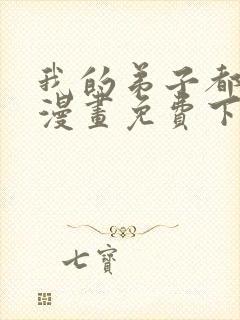 我的弟子都
漫畫免費下
七寶